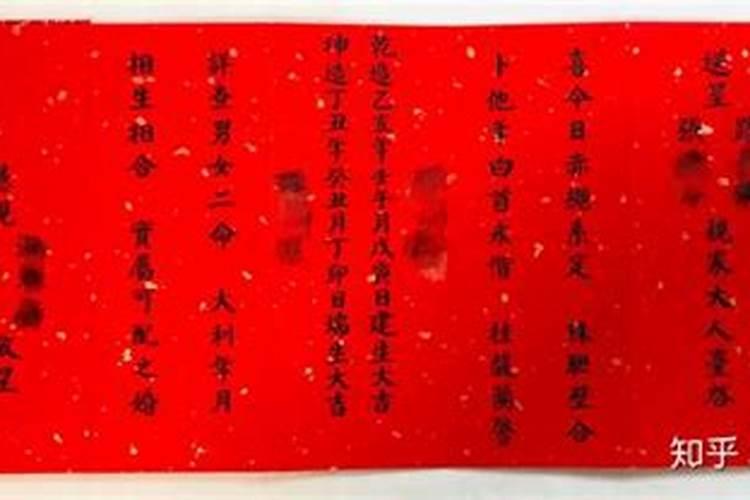 送呈 親家大人臺啓
張
喜今日赤繩系定 珠聯璧合
卜他年白首永偕 桂馥蘭馨
乾造乙亥年壬午月戊寅日建生大吉
坤造丁丑年癸丑月丁卯日瑞生大吉
詳查男女二命 大利年月
相生相合 實屬可配之婚
親 敬呈
知乎